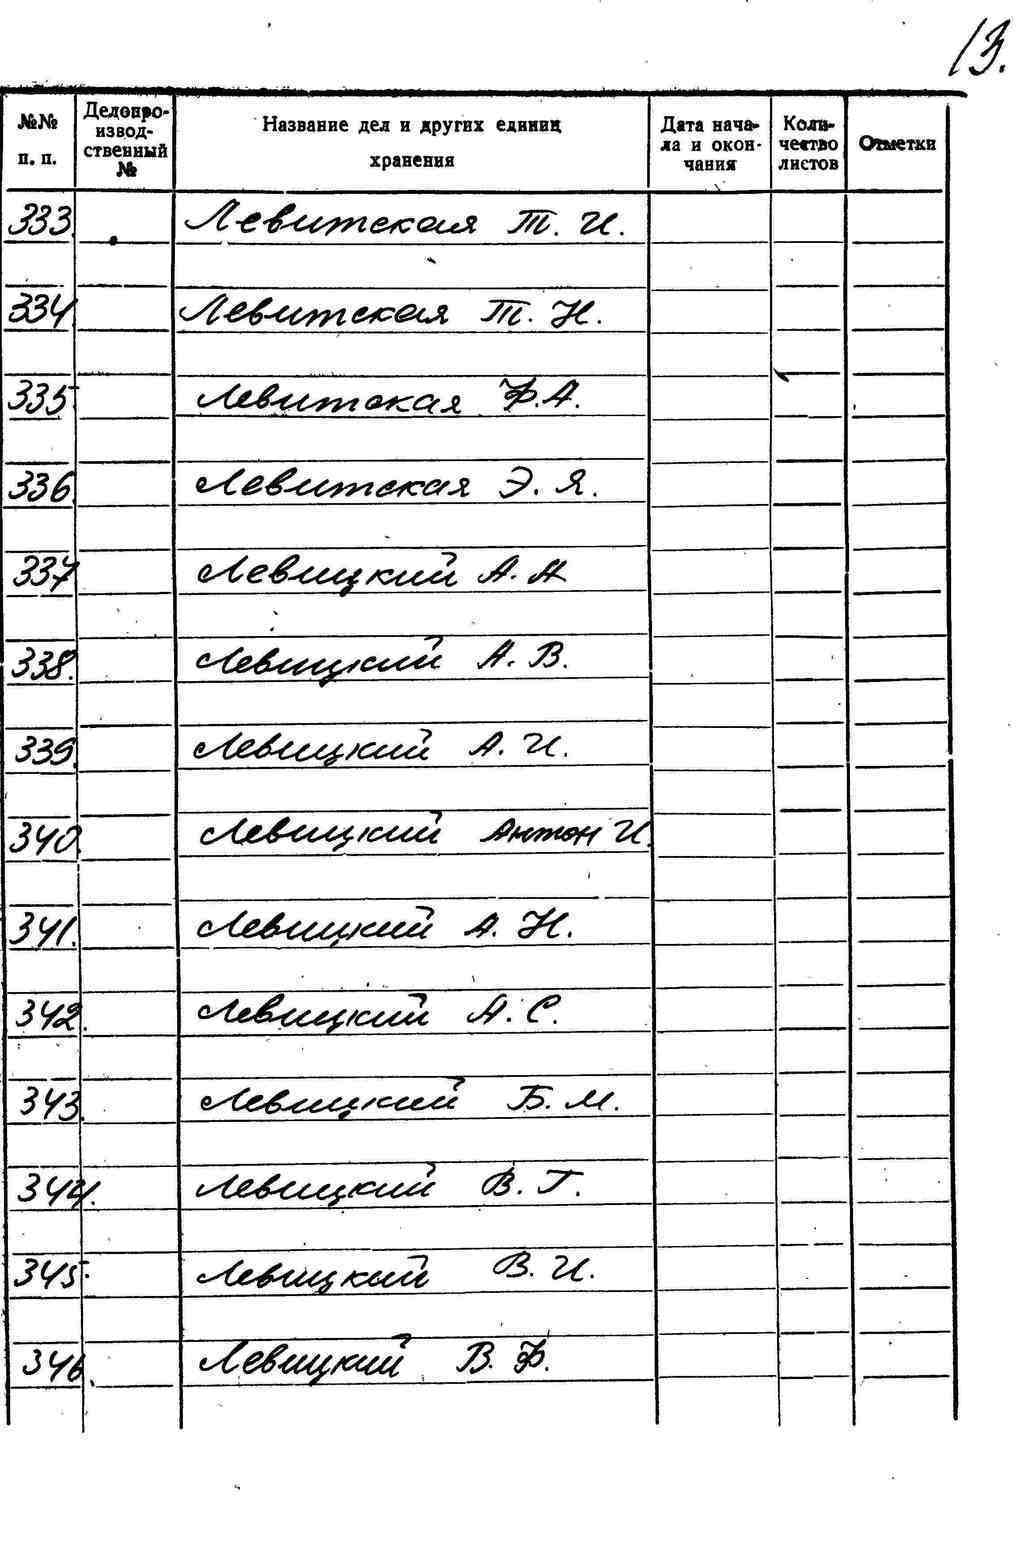 13.
№№ п. п. Делопроизводственный № Название дел и других единиц хранения Дата начала и окончания Количество листов Отметки
333. Левитская Т. И.
334. Левитская Т. Н.
335. Левитская Ф. А.
336. Левитская Э. Я.
337. Левицкий А. А.
338. Левицкий А. В.
339. Левицкий А. И.
340. Левицкий Антон И.
341. Левицкий А. Н.
342. Левицкий А. С.
343. Левицкий Б. М.
344. Левицкий В. Г.
345. Левицкий В. И.
346. Левицкий В. Ф.